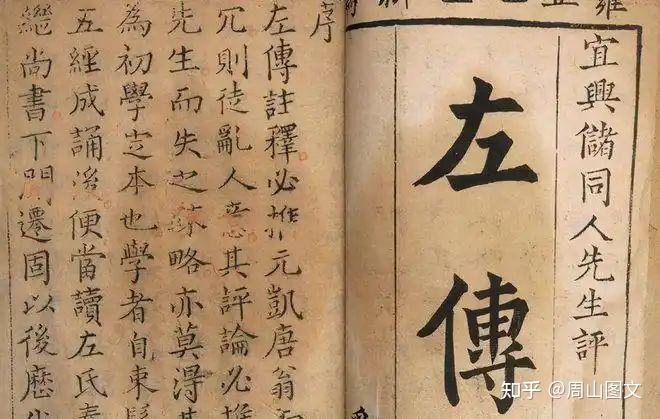 宜興儲同人先生評
左傳
序
左傳註釋必推元凱唐翁
冗則徒亂人意其評論必推
先生而失之疎略亦莫得其
為初學定本也學者自束髮
五經成誦後便當讀左氏
繼尚書下開遷固以後歷
知乎 @周山图文